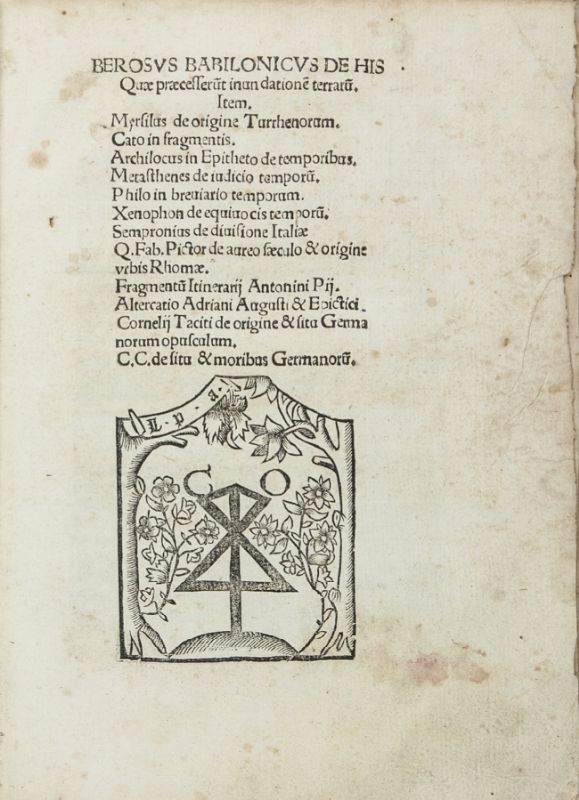 BEROSVS BABILONICVS DE HIS
Quæ præcesserũt inundationẽ terrarũ.
Item.
Myrsilus de origine Turrhenorum.
Cato in fragmentis.
Archilocus in Epitheto de temporibus.
Metasthenes de iudicio temporũ.
Philo in breuiario temporum.
Xenophon de equiuocis temporũ.
Sempronius de diuisione Italiæ
Q. Fab. Pictor de aureo sæculo & origine
vrbis Rhomæ.
Fragmentũ Itinerarij Antonini Pij.
Altercatio Adriani Augusti & Epictici.
Cornelij Taciti de origine & situ Germa
norum opusculum.
C.C. de situ & moribus Germanorũ.
L. p. a.
C O